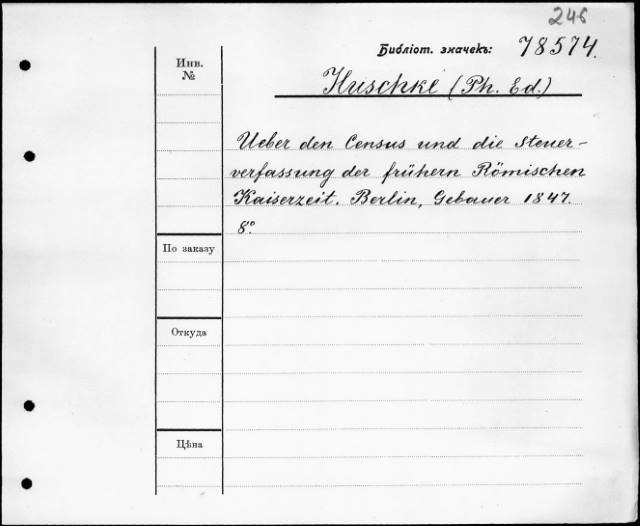 246
Библіот. значекъ: 78574.
Инв.
№
Huschke (Ph. Ed.)
Ueber den Census und die Steuer-
verfassung der frühern Römischen
Kaiserzeit. Berlin, Gebauer 1847.
8°.
По заказу
Откуда
Цѣна